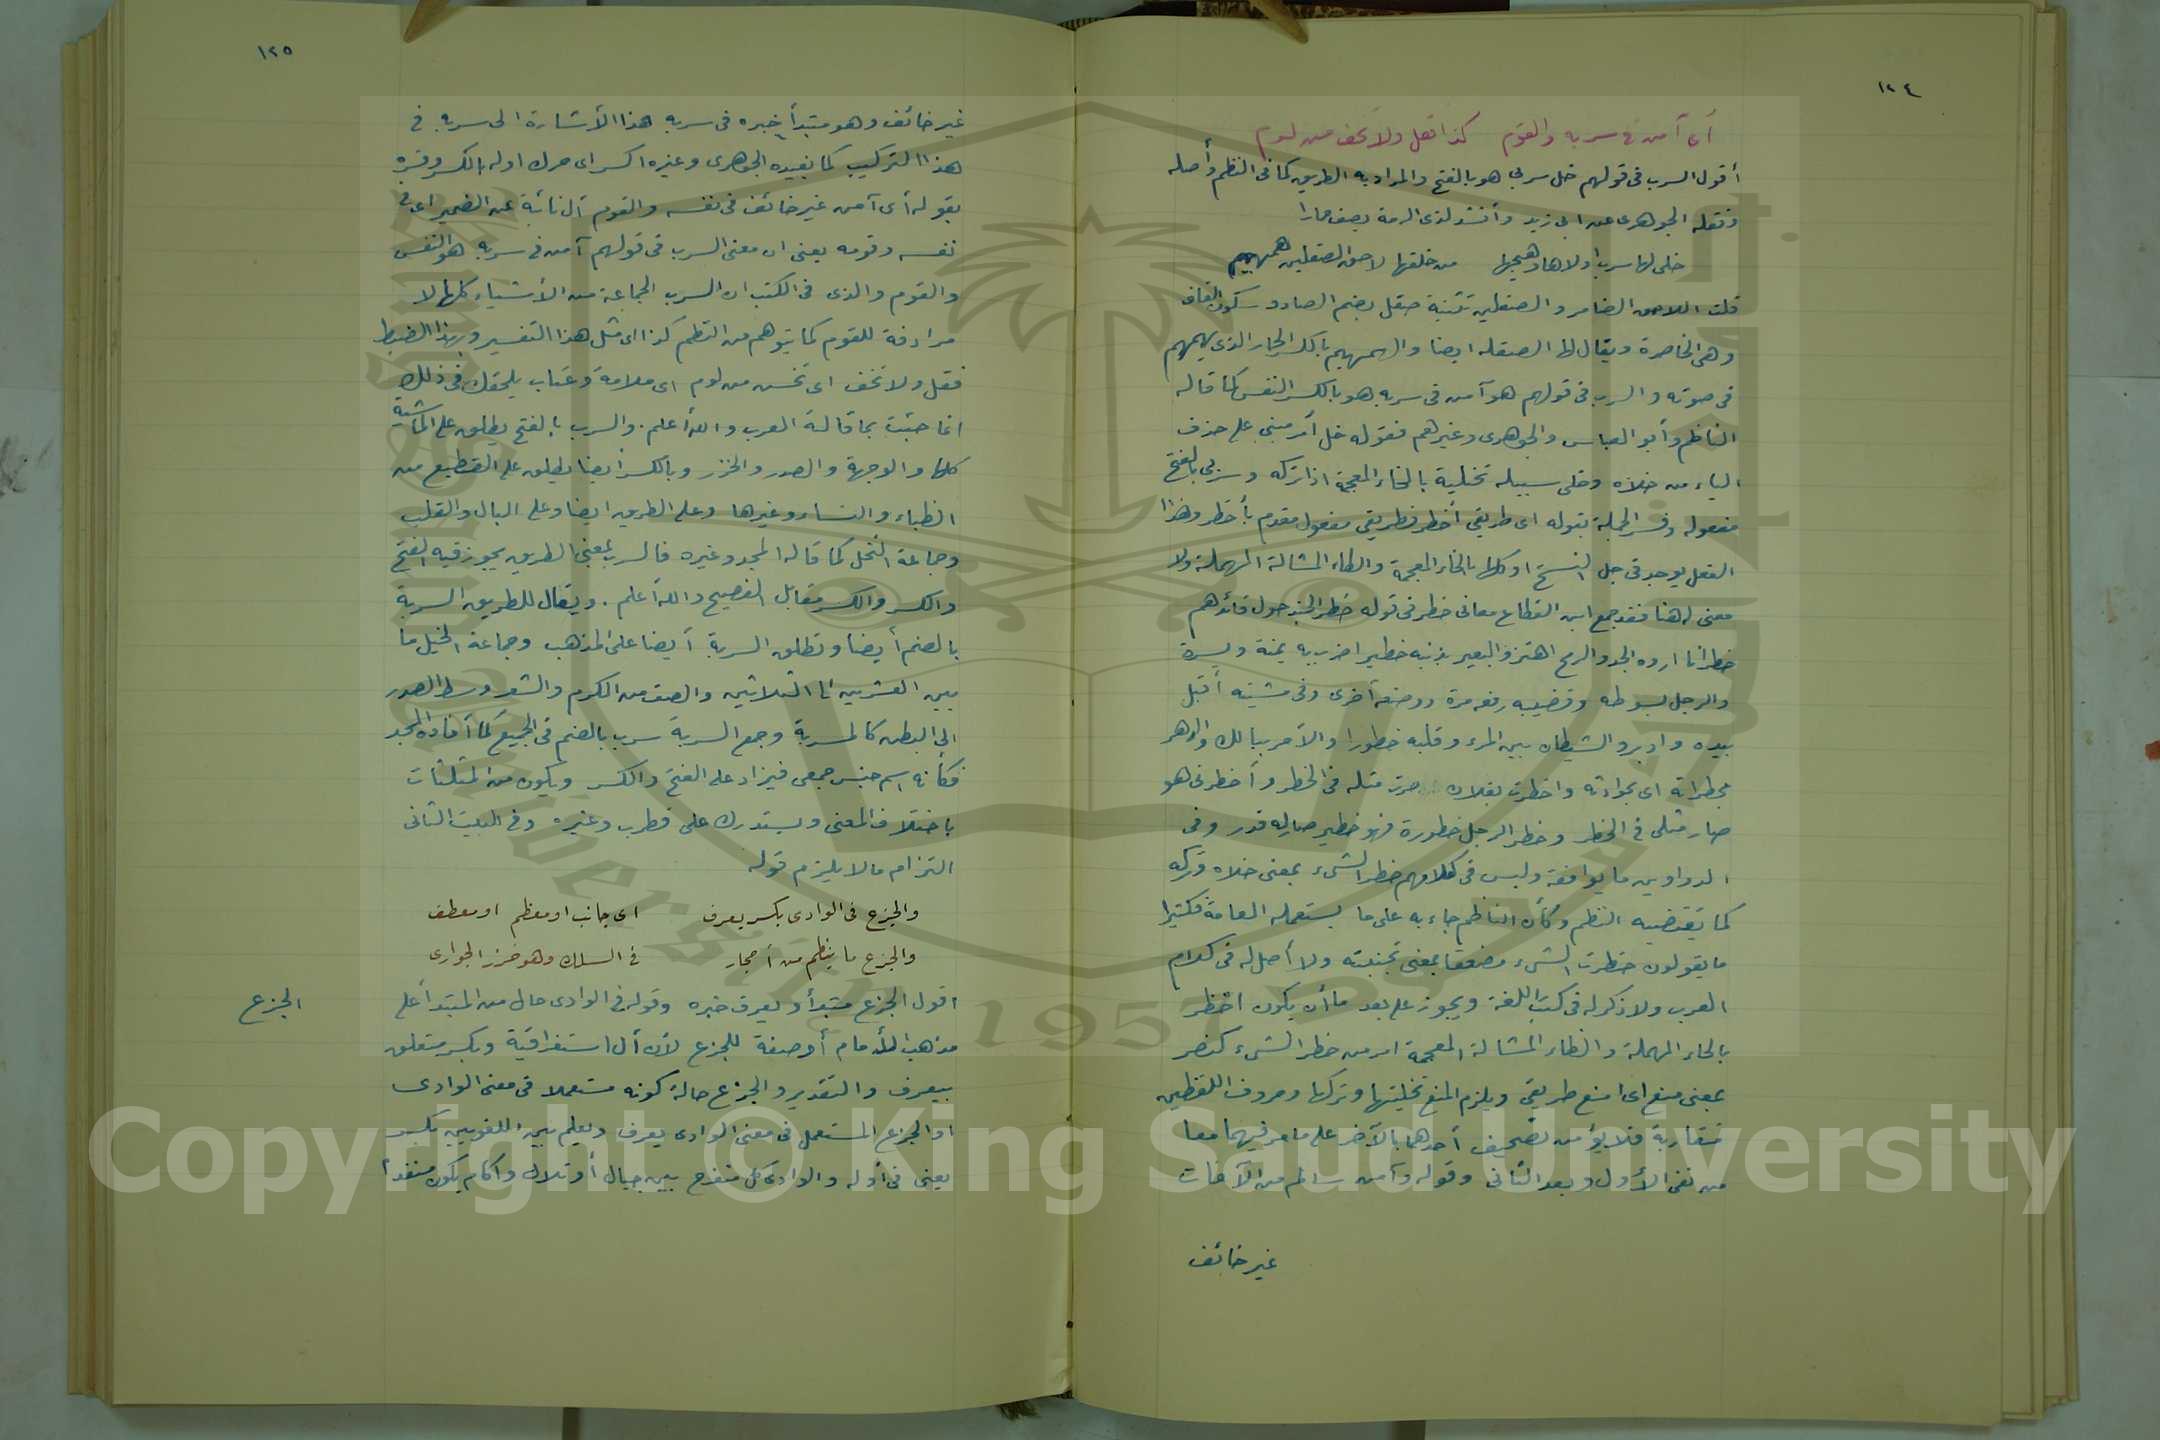 ١٢٤
أى آمن فى سربه والقوم كذا فقل ولا تخف من لوم
أقول السرب فى قولهم خل سربى هو بالفتح والمراد به الطريق كما فى النظم وأصله
ونقله الجوهرى عن ابى زيد وأنشد لذى الرمة يصف حمارا
خلى لها سرب اولاها وهيجها من خلفها لاحق الصقلين همهيم
قلت اللاحق الضامر والصقلين تثنية صقل بضم الصاد وسكون القاف
وهى الخاصرة ويقال لها الصقلة ايضا والهمهيم بالكسر الحمار الذى يهمهم
فى صوته والسرب فى قولهم هو آمن فى سربه هو بالكسر النفس كما قاله
الناظم وأبو العباس والجوهرى وغيرهم فقوله خل أمر مبنى على حذف
الياء من خلاه وخلى سبيله تخلية بالخاء المعجمة اذا تركه وسربى بالفتح
مفعوله وفسر الجملة بقوله اى طريقى أخطر فطريقى مفعول مقدم بأخطر وهذا
الفعل يوجد فى جل النسخ او كلها بالخاء المعجمة والطاء المشالة المهملة ولا
معنى له هنا فقد جمع ابن القطاع معانى خطر فى قوله خطر الجند حول قائدهم
خطرانا اروه الجد والرمح اهتز والبعير بذنبه خطيرا ضرب به يمنة ويسرة
والرجل بسوطه وقضيبه رفعه مرة ووضعه أخرى وفى مشيته أقبل
بيده وادبر والشيطان بين المرء وقلبه خطورا والأمر ببالك والدهر
بخطراته اى بحوادثه واخطرت بفلان صرت مثله فى الخطر وأخطرنى هو
صار مثلى فى الخطر وخطر الرجل خطورة فهو خطير صار له قدر وفى
الدواوين ما يوافقه وليس فى كلامهم خطر الشىء بمعنى خلاه وتركه
كما يقتضيه النظم وكأن الناظم جاء به على ما يستعمله العامة فكثيرا
ما يقولون خطرت الشىء مضعفا بمعنى تجنبته ولا أصل له فى كلام
العرب ولا ذكر له فى كتب اللغة ويجوز على بعد ما أن يكون احظر
بالحاء المهملة والظاء المشالة المعجمة امر من حظر الشىء كنصر
بمعنى منع اى امنع طريقى ويلزم المنع تخليتها وتركها وحروف اللفظين
متقاربة فلا يؤمن تصحيف أحدهما بالآخر على ما مر فيهما معا
من نفى الأول وبعد الثانى وقوله وآمن سالم من الآفات
غير خائف
١٢٥
غير خائف وهو مبتدأ خبره فى سربه هذا الأشارة الى سربه فى
هذا التركيب كما يفيده الجوهرى وغيره اكسر اى حرك اوله بالكسر وفسره
بقوله أى آمن غير خائف فى نفسه والقوم أل نائبة عن الضمير اى فى
نفسه وقومه يعنى ان معنى السرب فى قولهم آمن فى سربه هو النفس
والقوم والذى فى الكتب ان السرب الجماعة من الأشياء كلها لا
مرادفة للقوم كما يتوهم من النظم كذا اى مثل هذا التفسير وبهذا الضبط
فقل ولا تخف اى تخش من لوم اى ملامة وعتاب يلحقك فى ذلك
انما جئت بما قالته العرب والله أعلم. والسرب بالفتح يطلق على الماشية
كلها والوجهة والصدر والخرز وبالكسر أيضا يطلق على القطيع من
الظباء والنساء وغيرها وعلى الطريق ايضا وعلى البال والقلب
وجماعة النخل كما قاله المجد وغيره فالسرب بمعنى الطريق يجوز فيه الفتح
والكسر والكسر مقابل الفصيح والله أعلم. ويقال للطريق السربة
بالضم أيضا وتطلق السربة أيضا على المذهب وجماعة الخيل ما
بين العشرين الى الثلاثين والصف من الكرم والشعر وسط الصدر
الى البطن كالمسربة وجمع السربة سرب بالضم فى الجميع كما أفاده المجد
فكأنه اسم جنس جمعى فيزاد على الفتح والكسر ويكون من المثلثات
باختلاف المعنى ويستدرك على قطرب وغيره وفى البيت الثانى
التزام مالا يلزم قوله
والجزع فى الوادى بكسر يعرف اى جانب او معظم او معطف
والجزع ما ينظم من أحجار فى السلك وهو خرز الجوارى
الجزع
اقول الجزع مبتدأ ويعرف خبره وقوله فى الوادى حال من المبتدأ على
مذهب الأمام أو صفة للجزع لأن أل استغراقية وبكسر متعلق
بيعرف والتقدير والجزع حالة كونه مستعملا فى معنى الوادى
او الجزع المستعمل فى معنى الوادى يعرف ويعلم بين اللغويين بكسر
يعنى فى أوله والوادى كل منفرج بين جبال أو تلال وآكام يكون منفذا
Copyright © King Saud University
1957